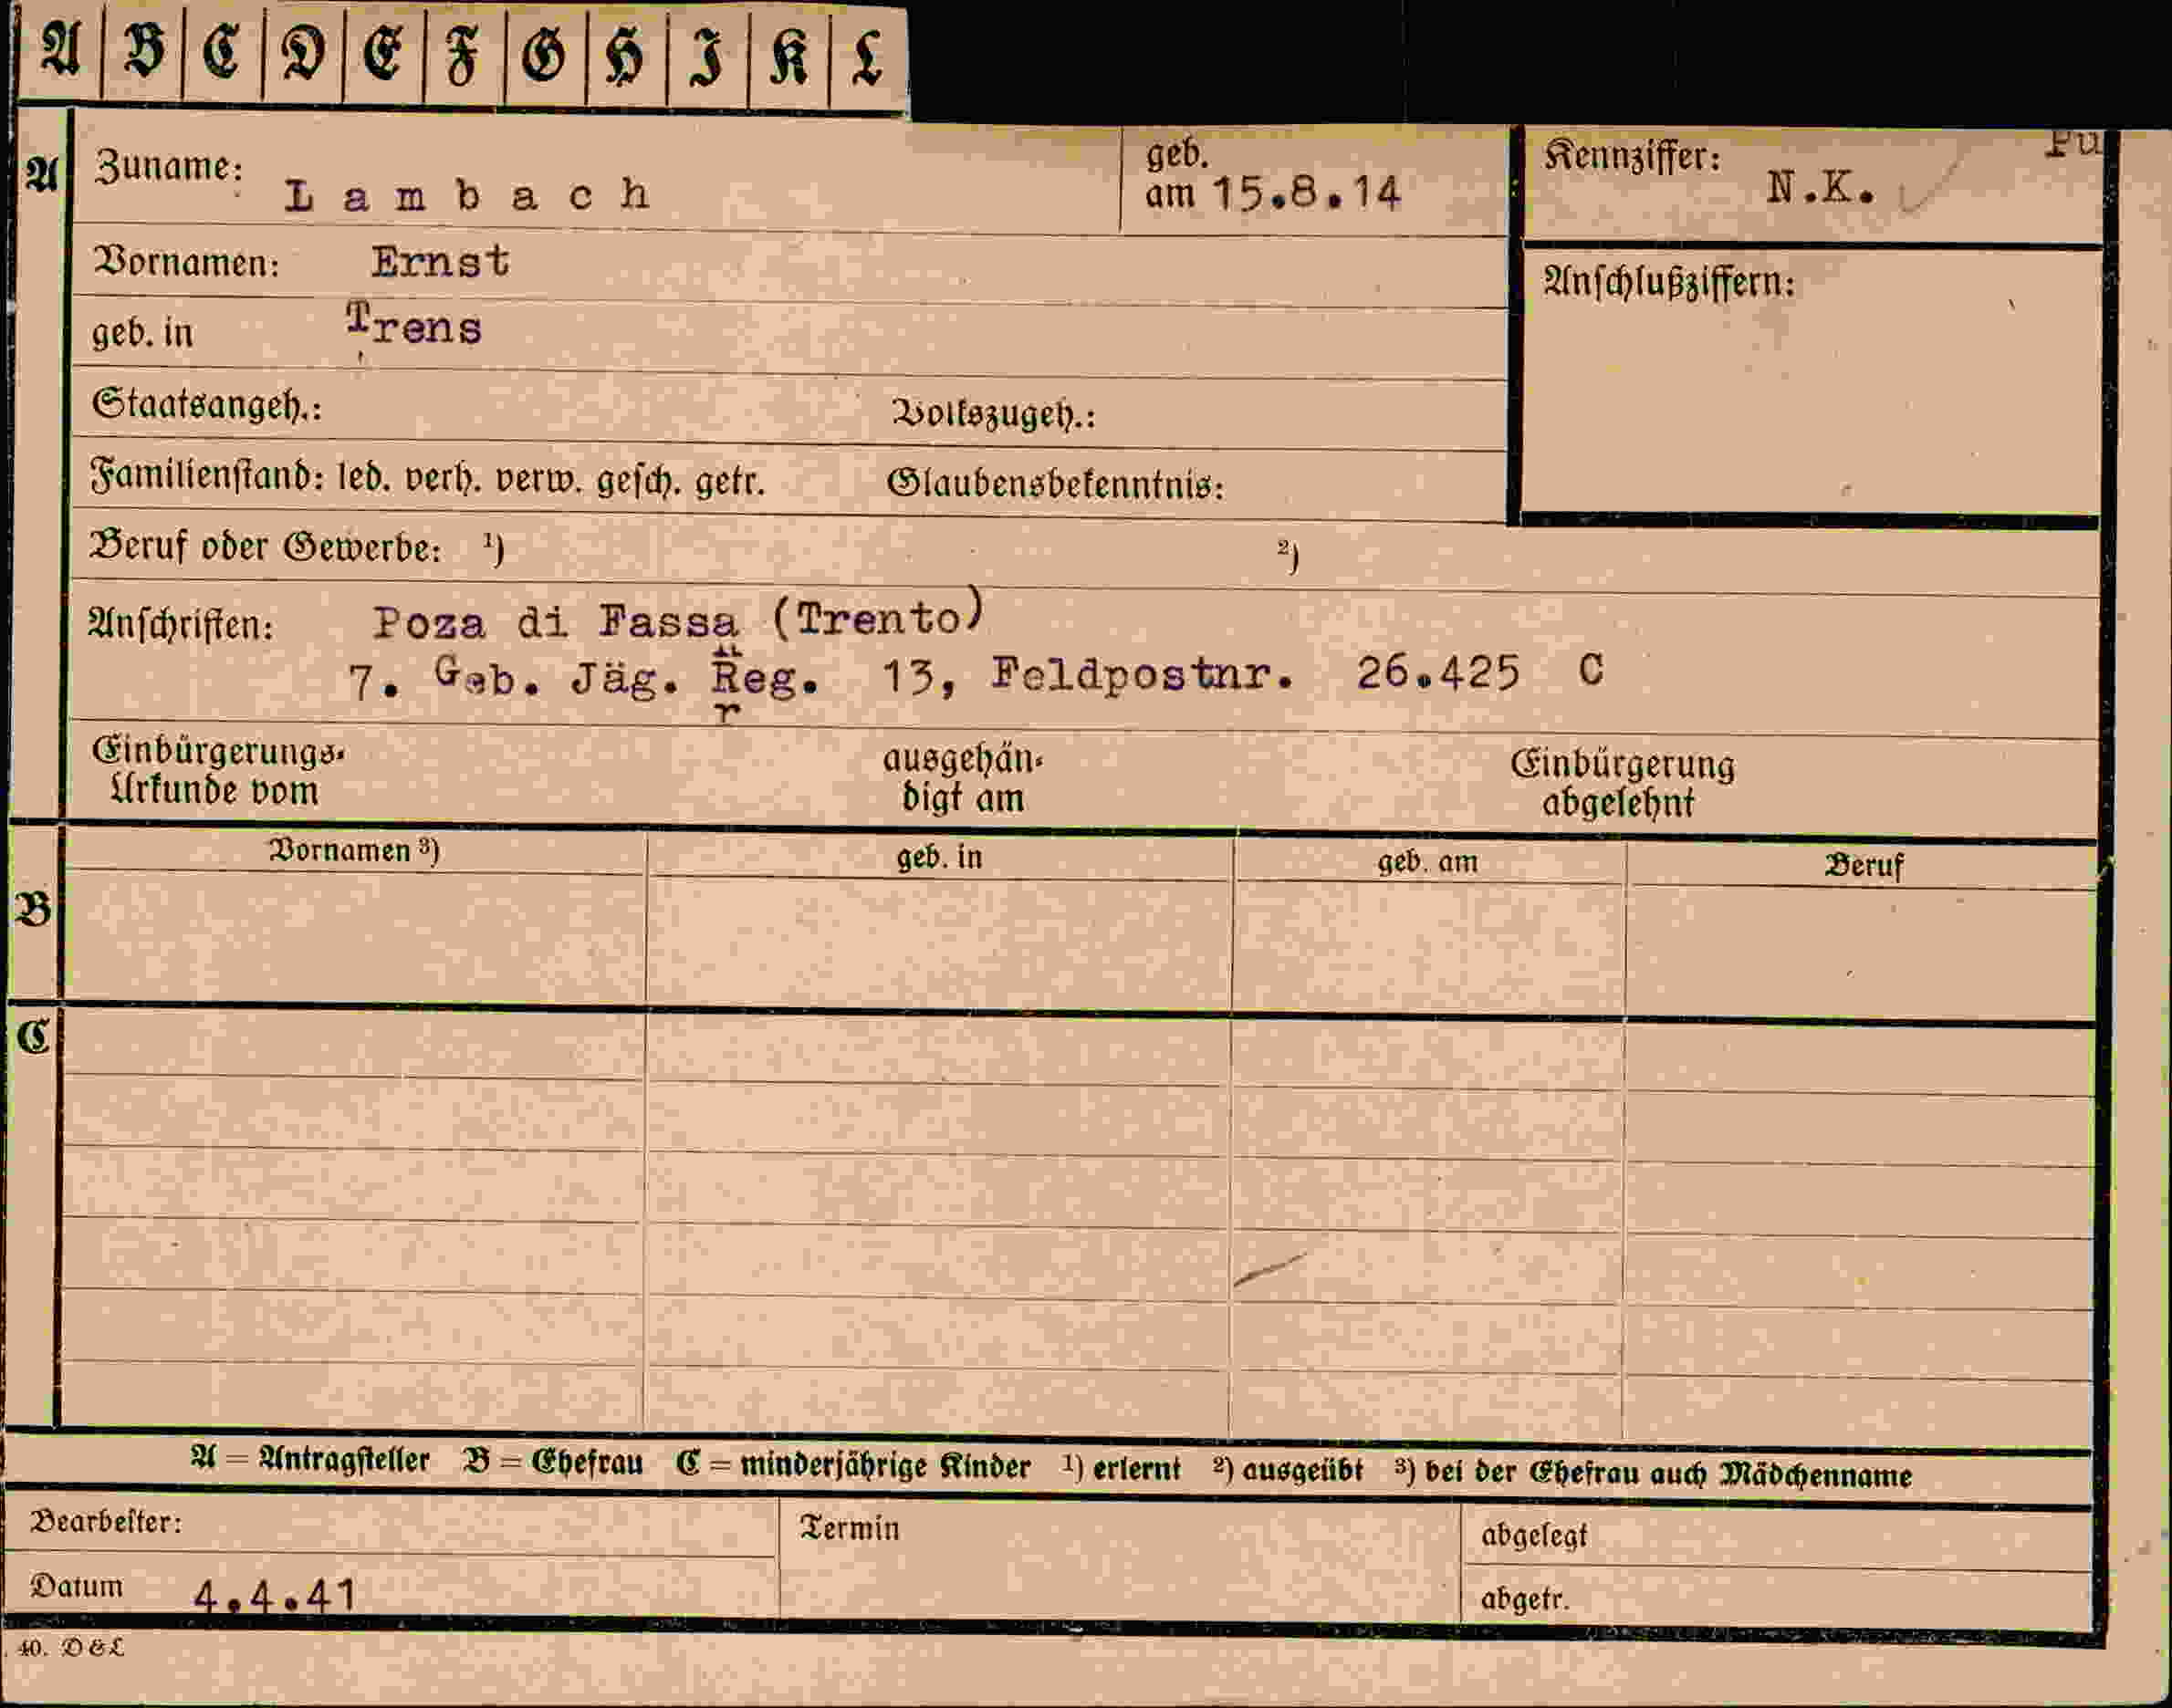 A B C D E F G H I K L
A Zuname: Lambach geb. am 15.8.14 Kennziffer: N.K. Pu
Vornamen: Ernst Anschlußziffern:
geb. in Trens
Staatsangeh.: Volkszugeh.:
Familienstand: led. verh. verw. gesch. getr. Glaubensbekenntnis:
Beruf oder Gewerbe: ¹) ²)
Anschriften: Poza di Fassa (Trento)
7. Geb. Jäg. Reg. 13, Feldpostnr. 26.425 C
r
Einbürgerungs- ausgehän- Einbürgerung
Urkunde vom digt am abgelehnt
Vornamen ³) geb. in geb. am Beruf
B
C
A = Antragsteller B = Ehefrau C = minderjährige Kinder ¹) erlernt ²) ausgeübt ³) bei der Ehefrau auch Mädchenname
Bearbeiter: Termin abgelegt
Datum 4.4.41 abgetr.
40. D&L